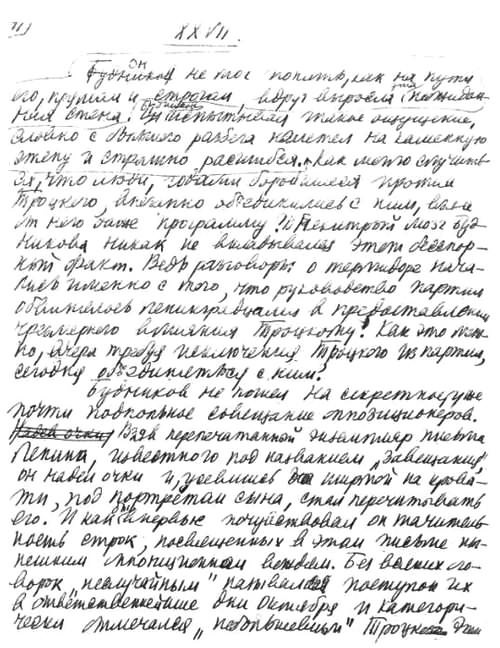 XXVII.
Он не мог понять, как на пути
его, прямом и строгом, вдруг выросла эта неожидан-
ная стена. Будников испытывал такое ощущение,
словно с большого разбега налетел на каменную
стену и страшно расшибся. Как могло случить-
ся, что люди, годами боровшиеся против
Троцкого, внезапно объединились с ним, взяли
от него даже программу? И нехитрый мозг Буд-
никова никак не вкладывался этот бесспор-
ный факт. Ведь разговоры о термидоре нача-
лись именно с того, что руководство партии
обвинялось ленинградцами в предоставлении
чрезмерного влияния Троцкому! Как это мож-
но, вчера требуя исключения Троцкого из партии,
сегодня объединяться с ним?
Будников не пошел на секретное, уже
почти подпольное совещание оппозиционеров.
Взяв перепечатанный экземпляр письма
Ленина, известного под названием „Завещания",
он надел очки и, усевшись на крова-
ти, под портретом сына, стал перечитывать
его. И как бы впервые почувствовал он значитель-
ность строк, посвященных в этом письме ны-
нешним оппозиционным вождям. Без всяких ого-
ворок „неслучайным" назывался поступок их
в ответственнейшие дни Октября и категори-
чески отмечался „небольшевизм" Троцкого. Эти